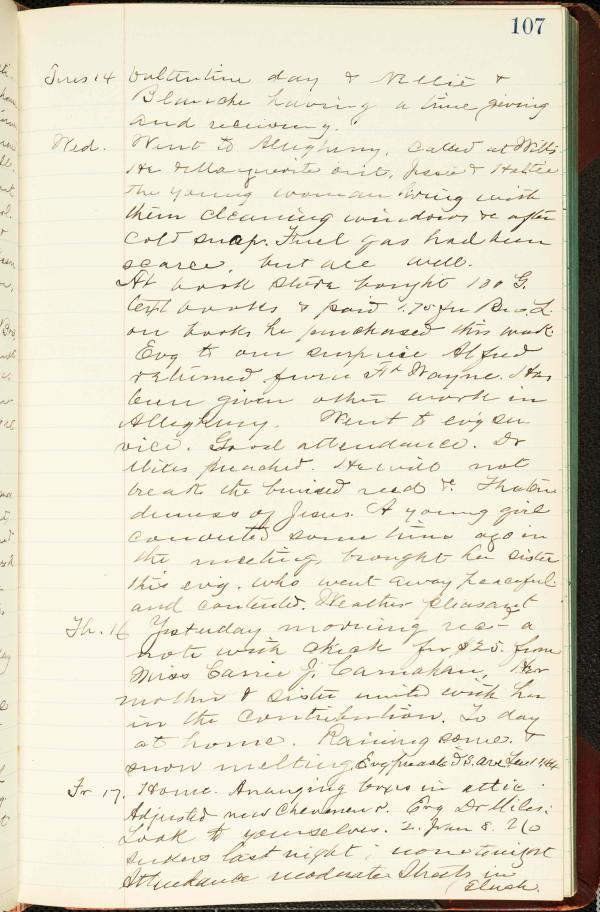 107
Tues 14 Valtentine day & Nellie &
Blanche having a time giving
and receiving.
Wed. Went to Allegheny. Called at Will's
He & Marguerite out, Jessie & Hattie
The young woman living with
them cleaning windows &c after
cold snap. Fuel gas had been
scarce, but all well.
At book store bought 100 G.
text books & paid 1.75 for Bro. L.
on books he purchased this week.
Evg to our surprise Alfred
returned from Ft Wayne. Has
been given other work in
Allegheny. Went to ev'g ser
vice. Good attendance. Dr
Miles preached. He will not
break the bruised reed &. The ten
derness of Jesus. A young girl
converted some time ago in
the meeting, brought her sister
this evig. who went away peaceful
and contented. Weather pleasant
Th. 16 Yesterday morning rec'd a
note with check for $25. from
Miss Carrie J. Carnahan, Her
mother & sister united with her
in the contribution. To day
at home. Raining some. &
snow melting. Evg preached
Fr 17. Home. Arranging boxes in attic.
Adjusted new Evg Dr Miles:
Look to yourselves. 2. Jno 8. No
seekers last night; none tonight
Attendance moderate Streets in
Slush.